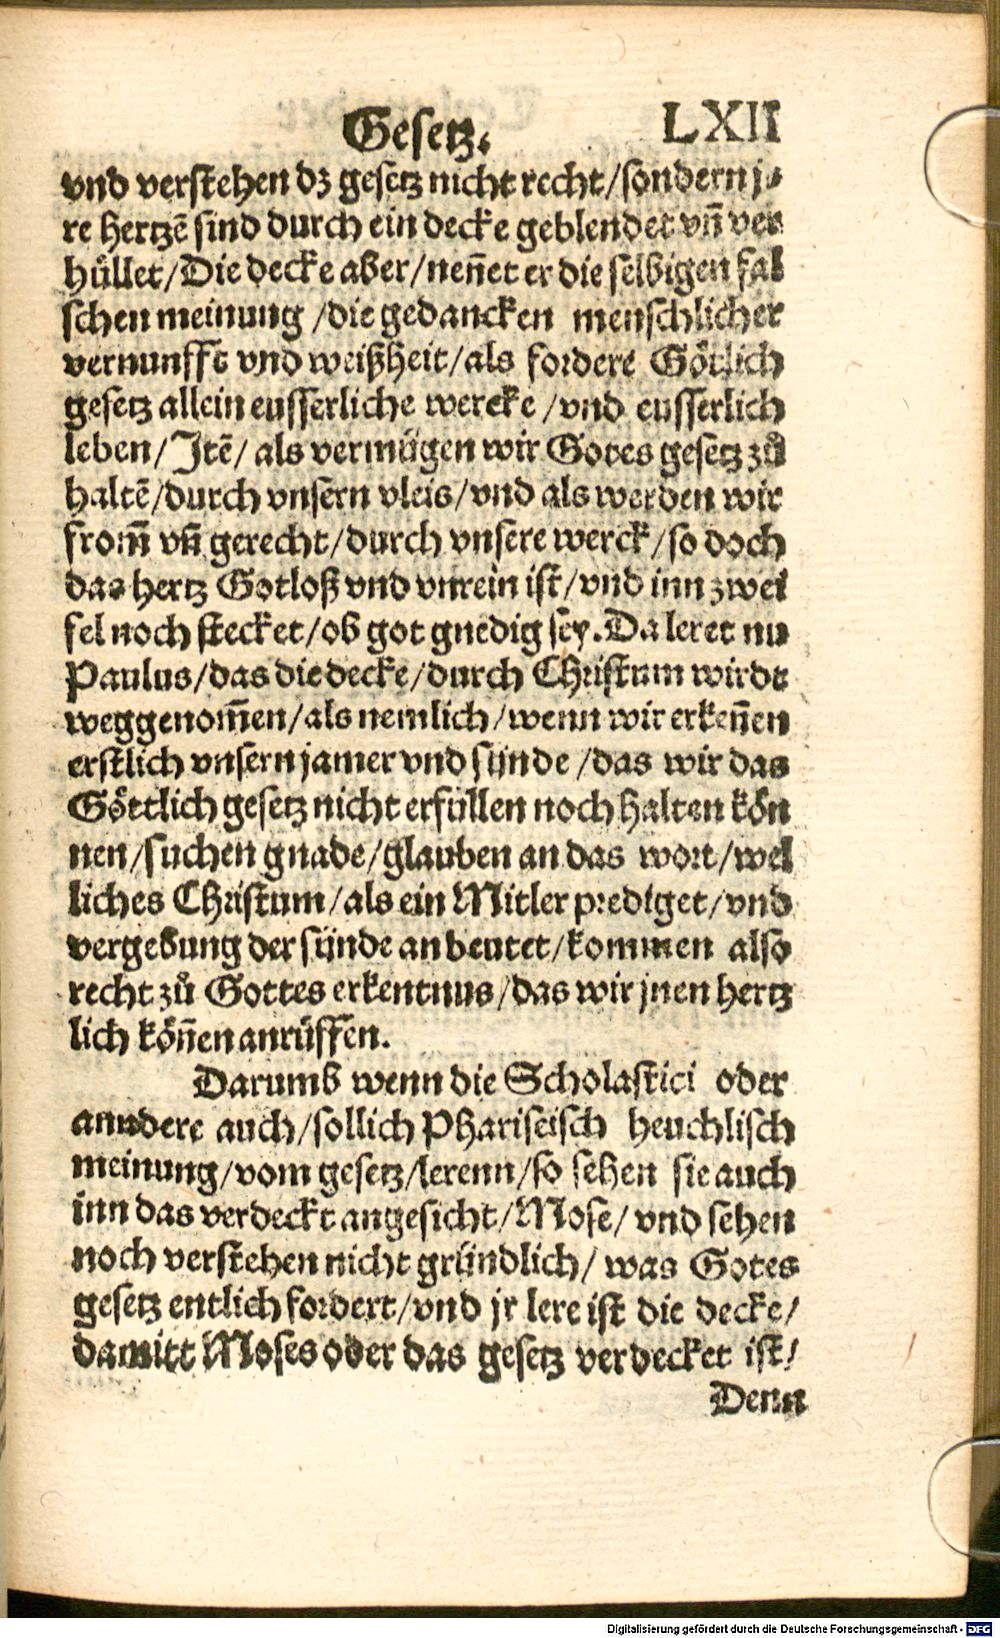 Gesetz. LXII
vnd verstehen dz gesetz nicht recht/sondern j-
re hertzē sind durch ein decke geblendet vn̄ ver
hůllet/Die decke aber/nen̄et er die selbigen fal
schen meinung/die gedancken menschlicher
vernunfft vnd weißheit/als fordere Götlich
gesetz allein eusserliche wercke/vnd eusserlich
leben/Itē/als vermügen wir Gotes gesetz zů
haltē/durch vnsern vleis/vnd als werden wir
from̄ vn̄ gerecht/durch vnsere werck/so doch
das hertz Gotloß vnd vnrein ist/vnd inn zwei
fel noch stecket/ob got gnedig sey. Da leret nu
Paulus/das die decke/durch Christum wirdt
weggenom̄en/als nemlich/wenn wir erken̄en
erstlich vnsern jamer vnd sünde/das wir das
Göttlich gesetz nicht erfüllen noch halten kön
nen/suchen gnade/glauben an das wort/wel
liches Christum/als ein Mitler prediget/vnd
vergebung der sünde anbeutet/kommen also
recht zů Gottes erkentnus/das wir jnen hertz
lich kön̄en anrüffen.
Darumb wenn die Scholastici oder
anndere auch/sollich Phariseisch heuchlisch
meinung/vom gesetz/lerenn/so sehen sie auch
inn das verdeckt angesicht/Mose/vnd sehen
noch verstehen nicht gründlich/was Gotes
gesetz entlich fordert/vnd jr lere ist die decke/
damitt Moses oder das gesetz verdecket ist/
Denn
Digitalisierung gefördert durch die Deutsche Forschungsgemeinschaft - DFG